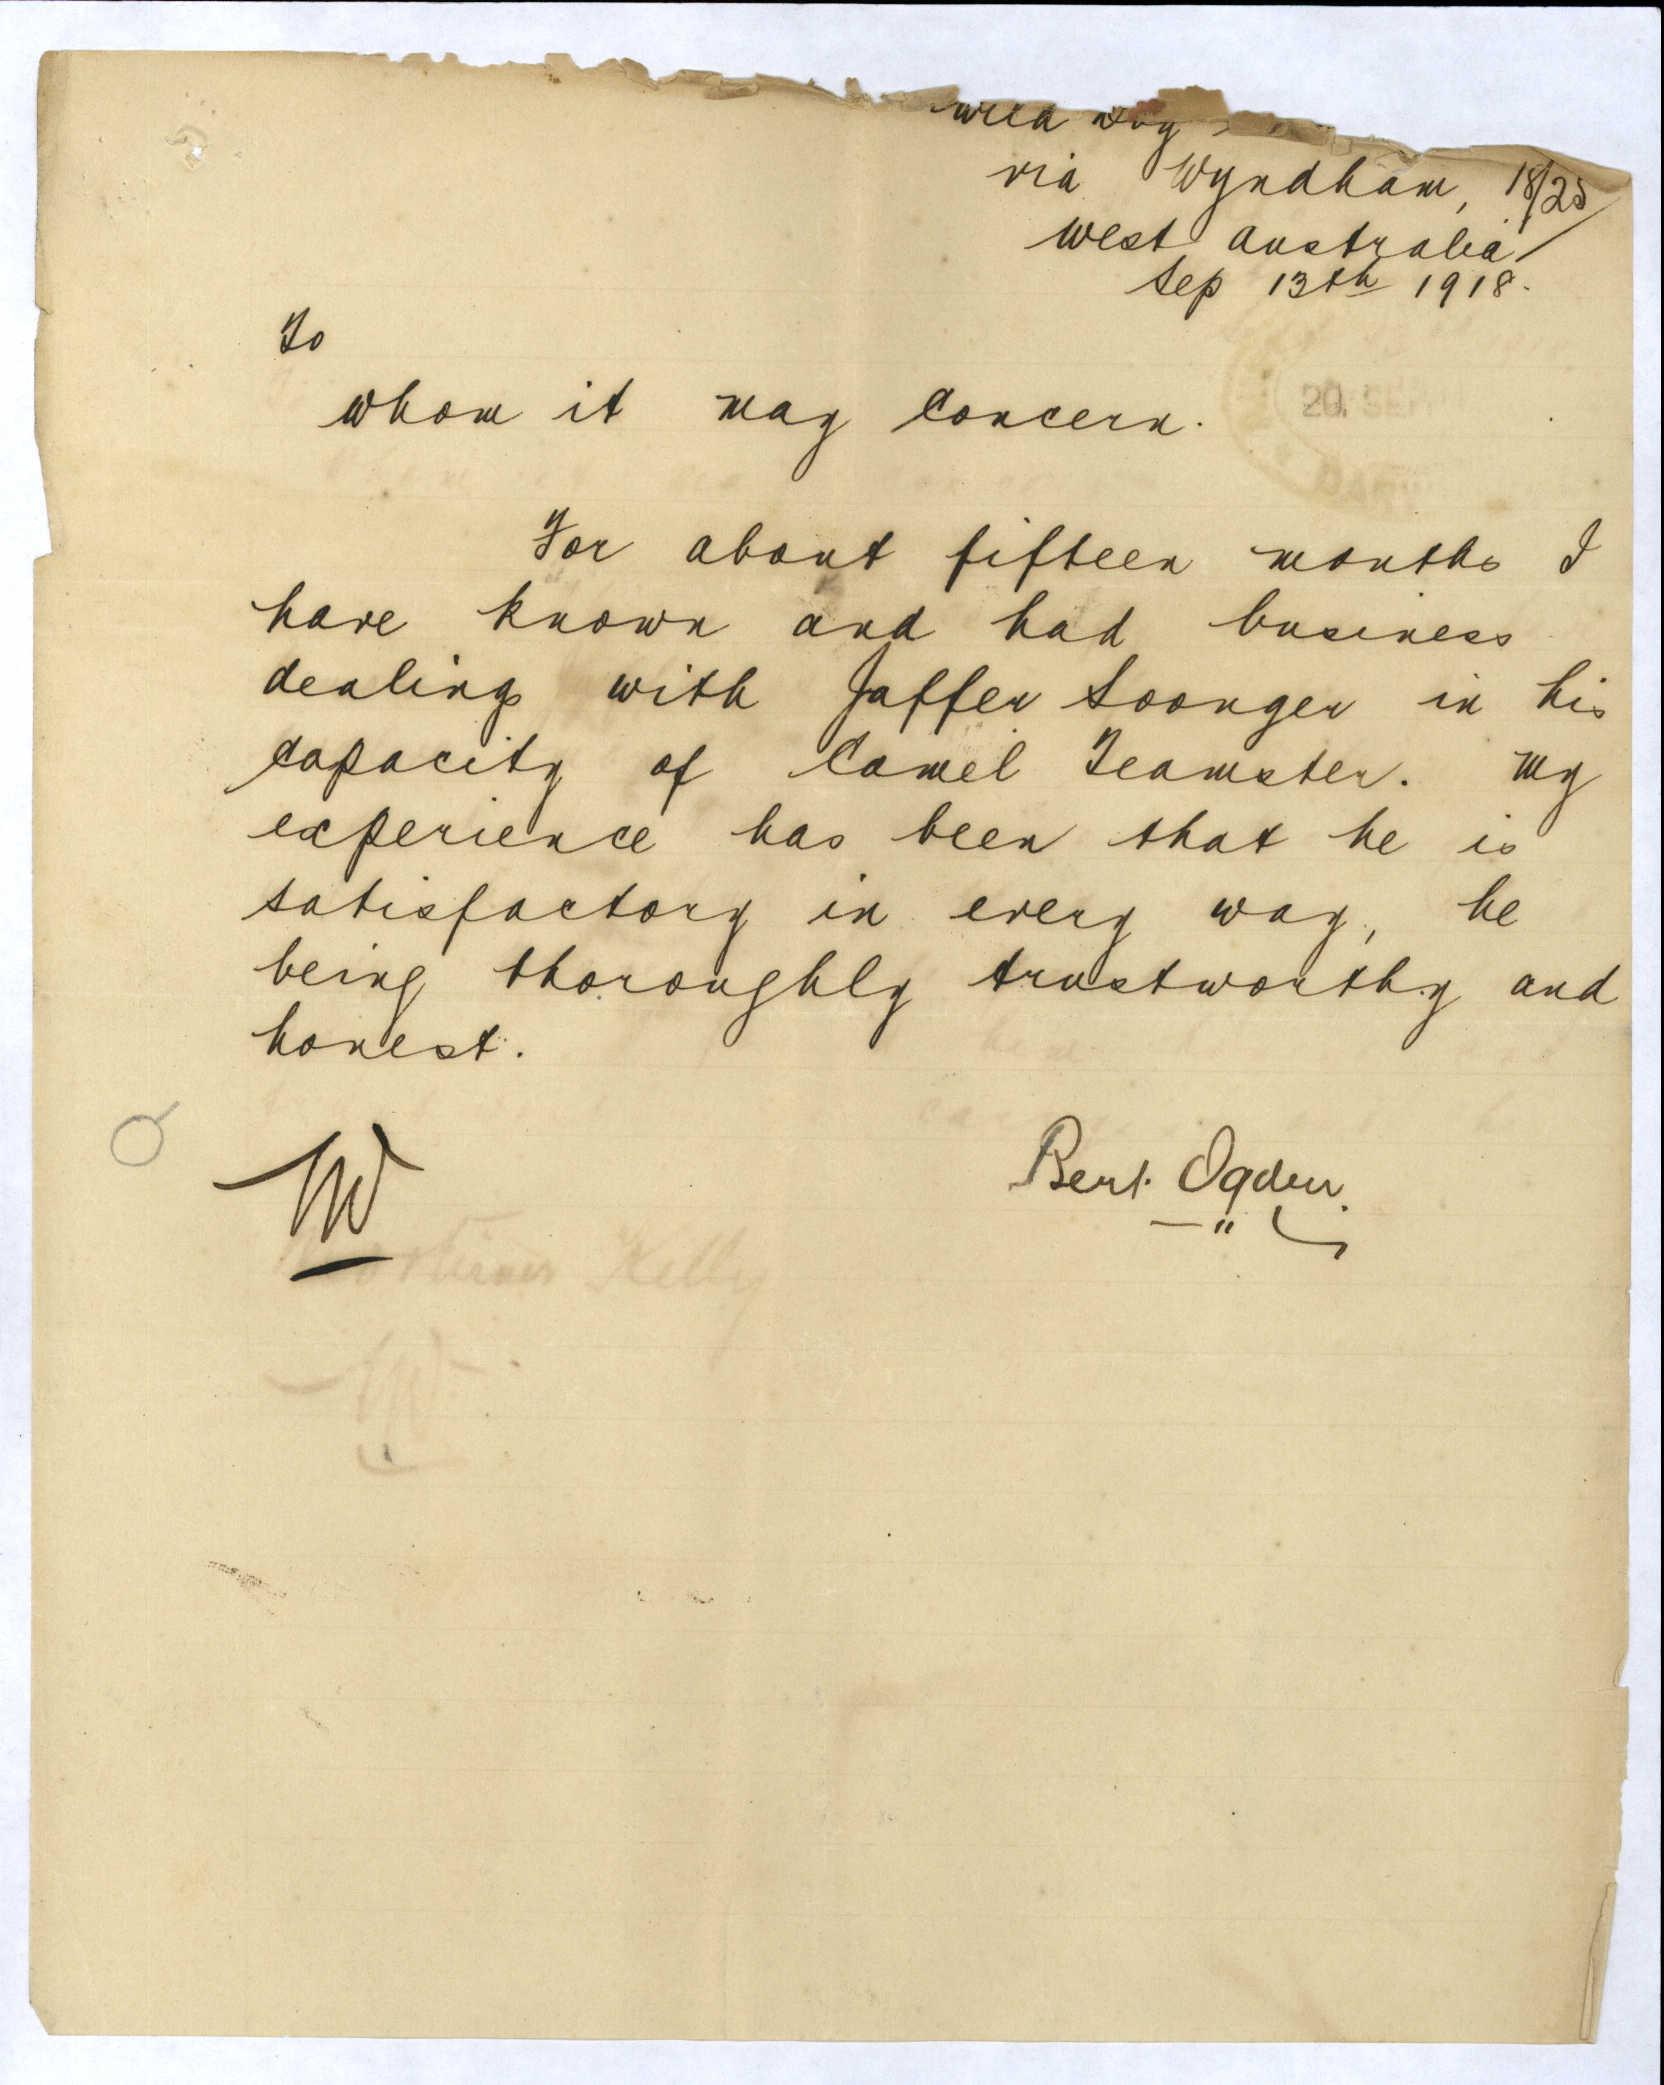 via Wyndham, 18/25
West Australia
Sep 13th 1918.
To
whom it may concern.
20. SEP
DARW
For about fifteen months I
have known and had business
dealings with Jaffer Soonger in his
capacity of Camel Teamster. My
experience has been that he is
satisfactory in every way, he
being thoroughly trustworthy and
honest.
Bert. Ogden.
Kelly